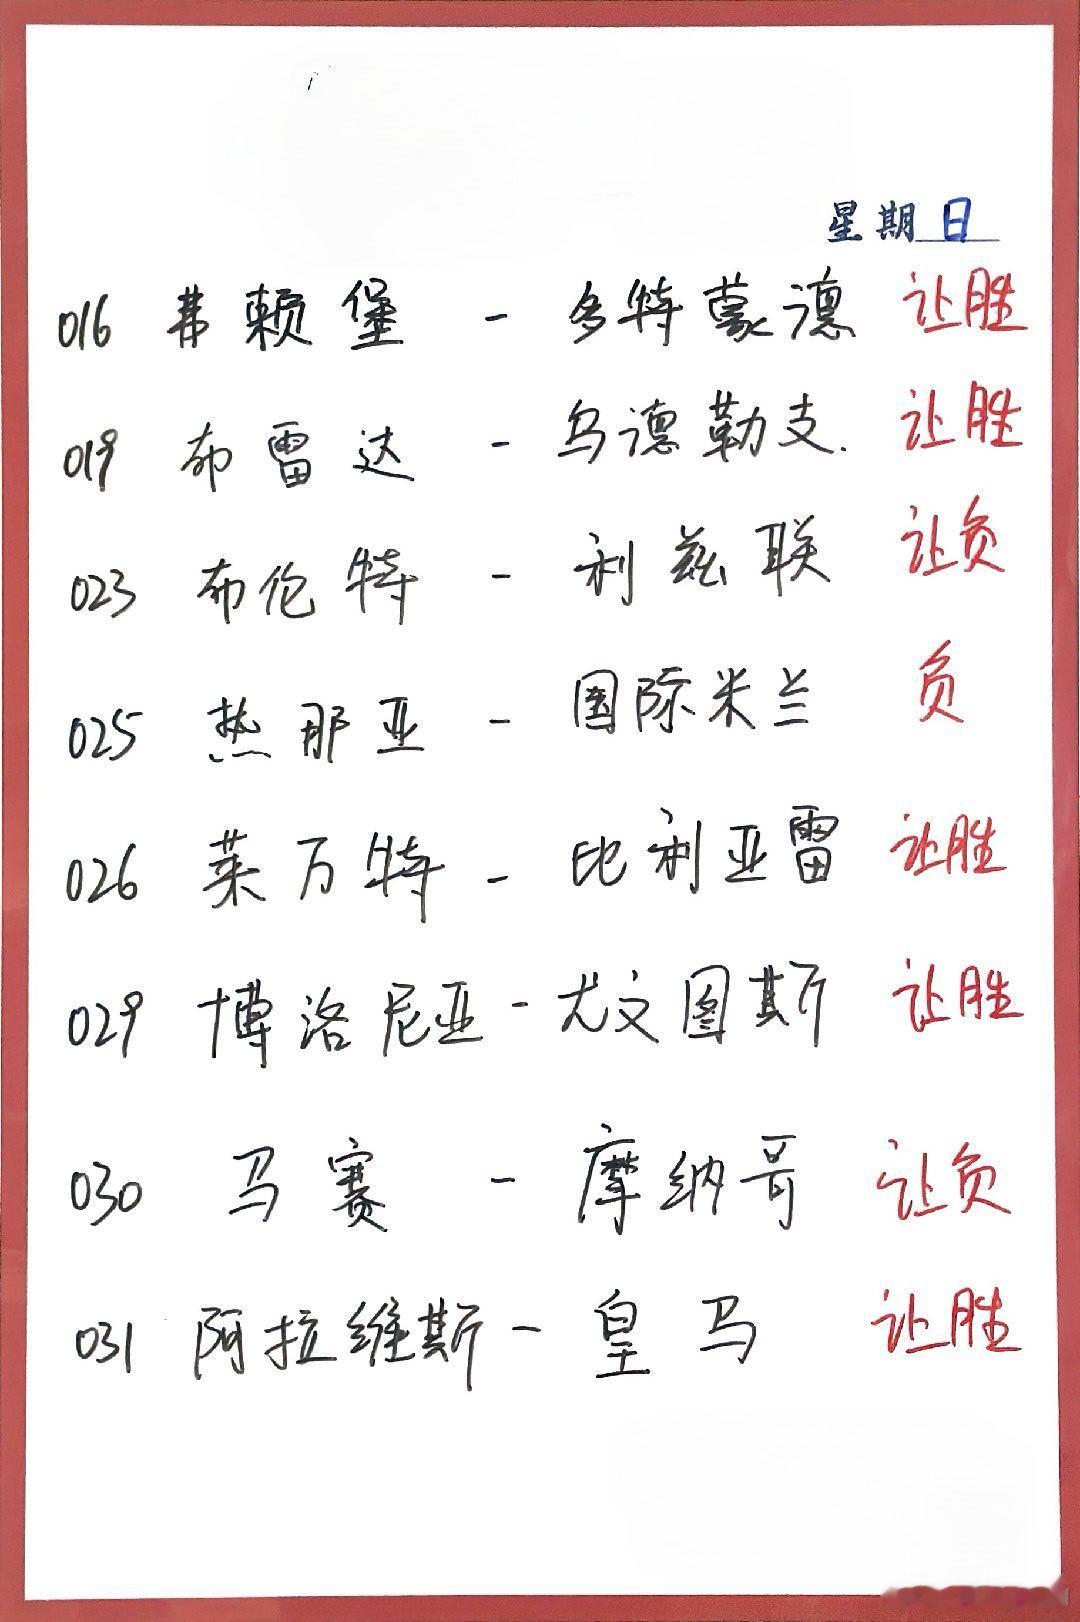 星期日
016 弗赖堡 - 多特蒙德 让胜
019 布雷达 - 乌德勒支. 让胜
023 布伦特 - 利兹联 让负
025 热那亚 - 国际米兰 负
026 莱万特 - 比利亚雷 让胜
029 博洛尼亚 - 尤文图斯 让胜
030 马赛 - 摩纳哥 让负
031 阿拉维斯 - 皇马 让胜